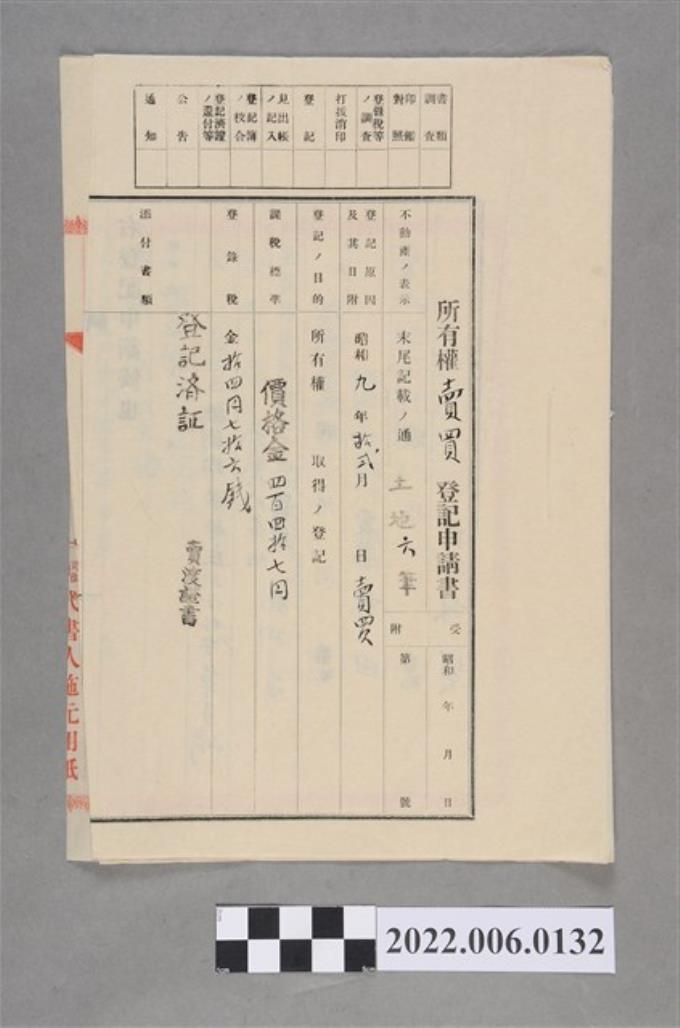 書類調査
印鑑對照
登錄稅等ノ調査
打拔消印
登記
見出帳ノ記入
登記簿ノ校合
登記濟證ノ還付等
公告
通知
所有權賣買登記申請書
受附
昭和 年 月 日
第 號
不動產ノ表示
末尾記載ノ通 土地六筆
登記原因及其日附
昭和九年拾弍月 日賣買
登記ノ目的
所有權 取得ノ登記
課稅標準
價格金四百四拾七円
登錄稅
金拾四円七拾六錢
添付書類
登記済証
賣渡証書
代書人施元用紙
2022.006.0132